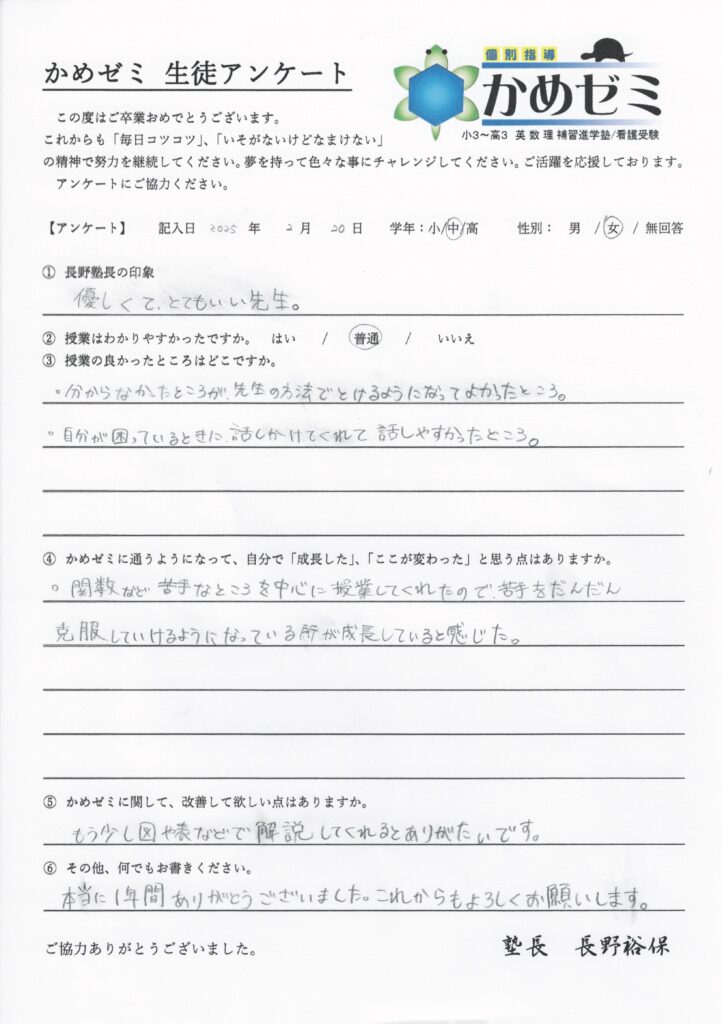 かめゼミ 生徒アンケート
個別指導
かめゼミ
小3～高3 英 数 理 補習進学塾/看護受験
この度はご卒業おめでとうございます。
これからも「毎日コツコツ」、「いそがないけどなまけない」
の精神で努力を継続してください。夢を持って色々な事にチャレンジしてください。ご活躍を応援しております。
アンケートにご協力ください。
【アンケート】 記入日 2025 年 2 月 20 日 学年：小/中/高 性別： 男 / 女 / 無回答
① 長野塾長の印象
優しくて、とてもいい先生。
② 授業はわかりやすかったですか。 はい / 普通 / いいえ
③ 授業の良かったところはどこですか。
。分からなかったところが、先生の方法でとけるようになってよかったところ。
。自分が困っているときに、話しかけてくれて 話しやすかったところ。
④ かめゼミに通うようになって、自分で「成長した」、「ここが変わった」と思う点はありますか。
。関数など 苦手なところを中心に 授業してくれたので、苦手をだんだん
克服していけるようになっている所が成長していると感じた。
⑤ かめゼミに関して、改善して欲しい点はありますか。
もう少し図や表などで解説してくれるとありがたいです。
⑥ その他、何でもお書きください。
本当に1年間ありがとうございました。これからもよろしくお願いします。
ご協力ありがとうございました。
塾長 長野裕保